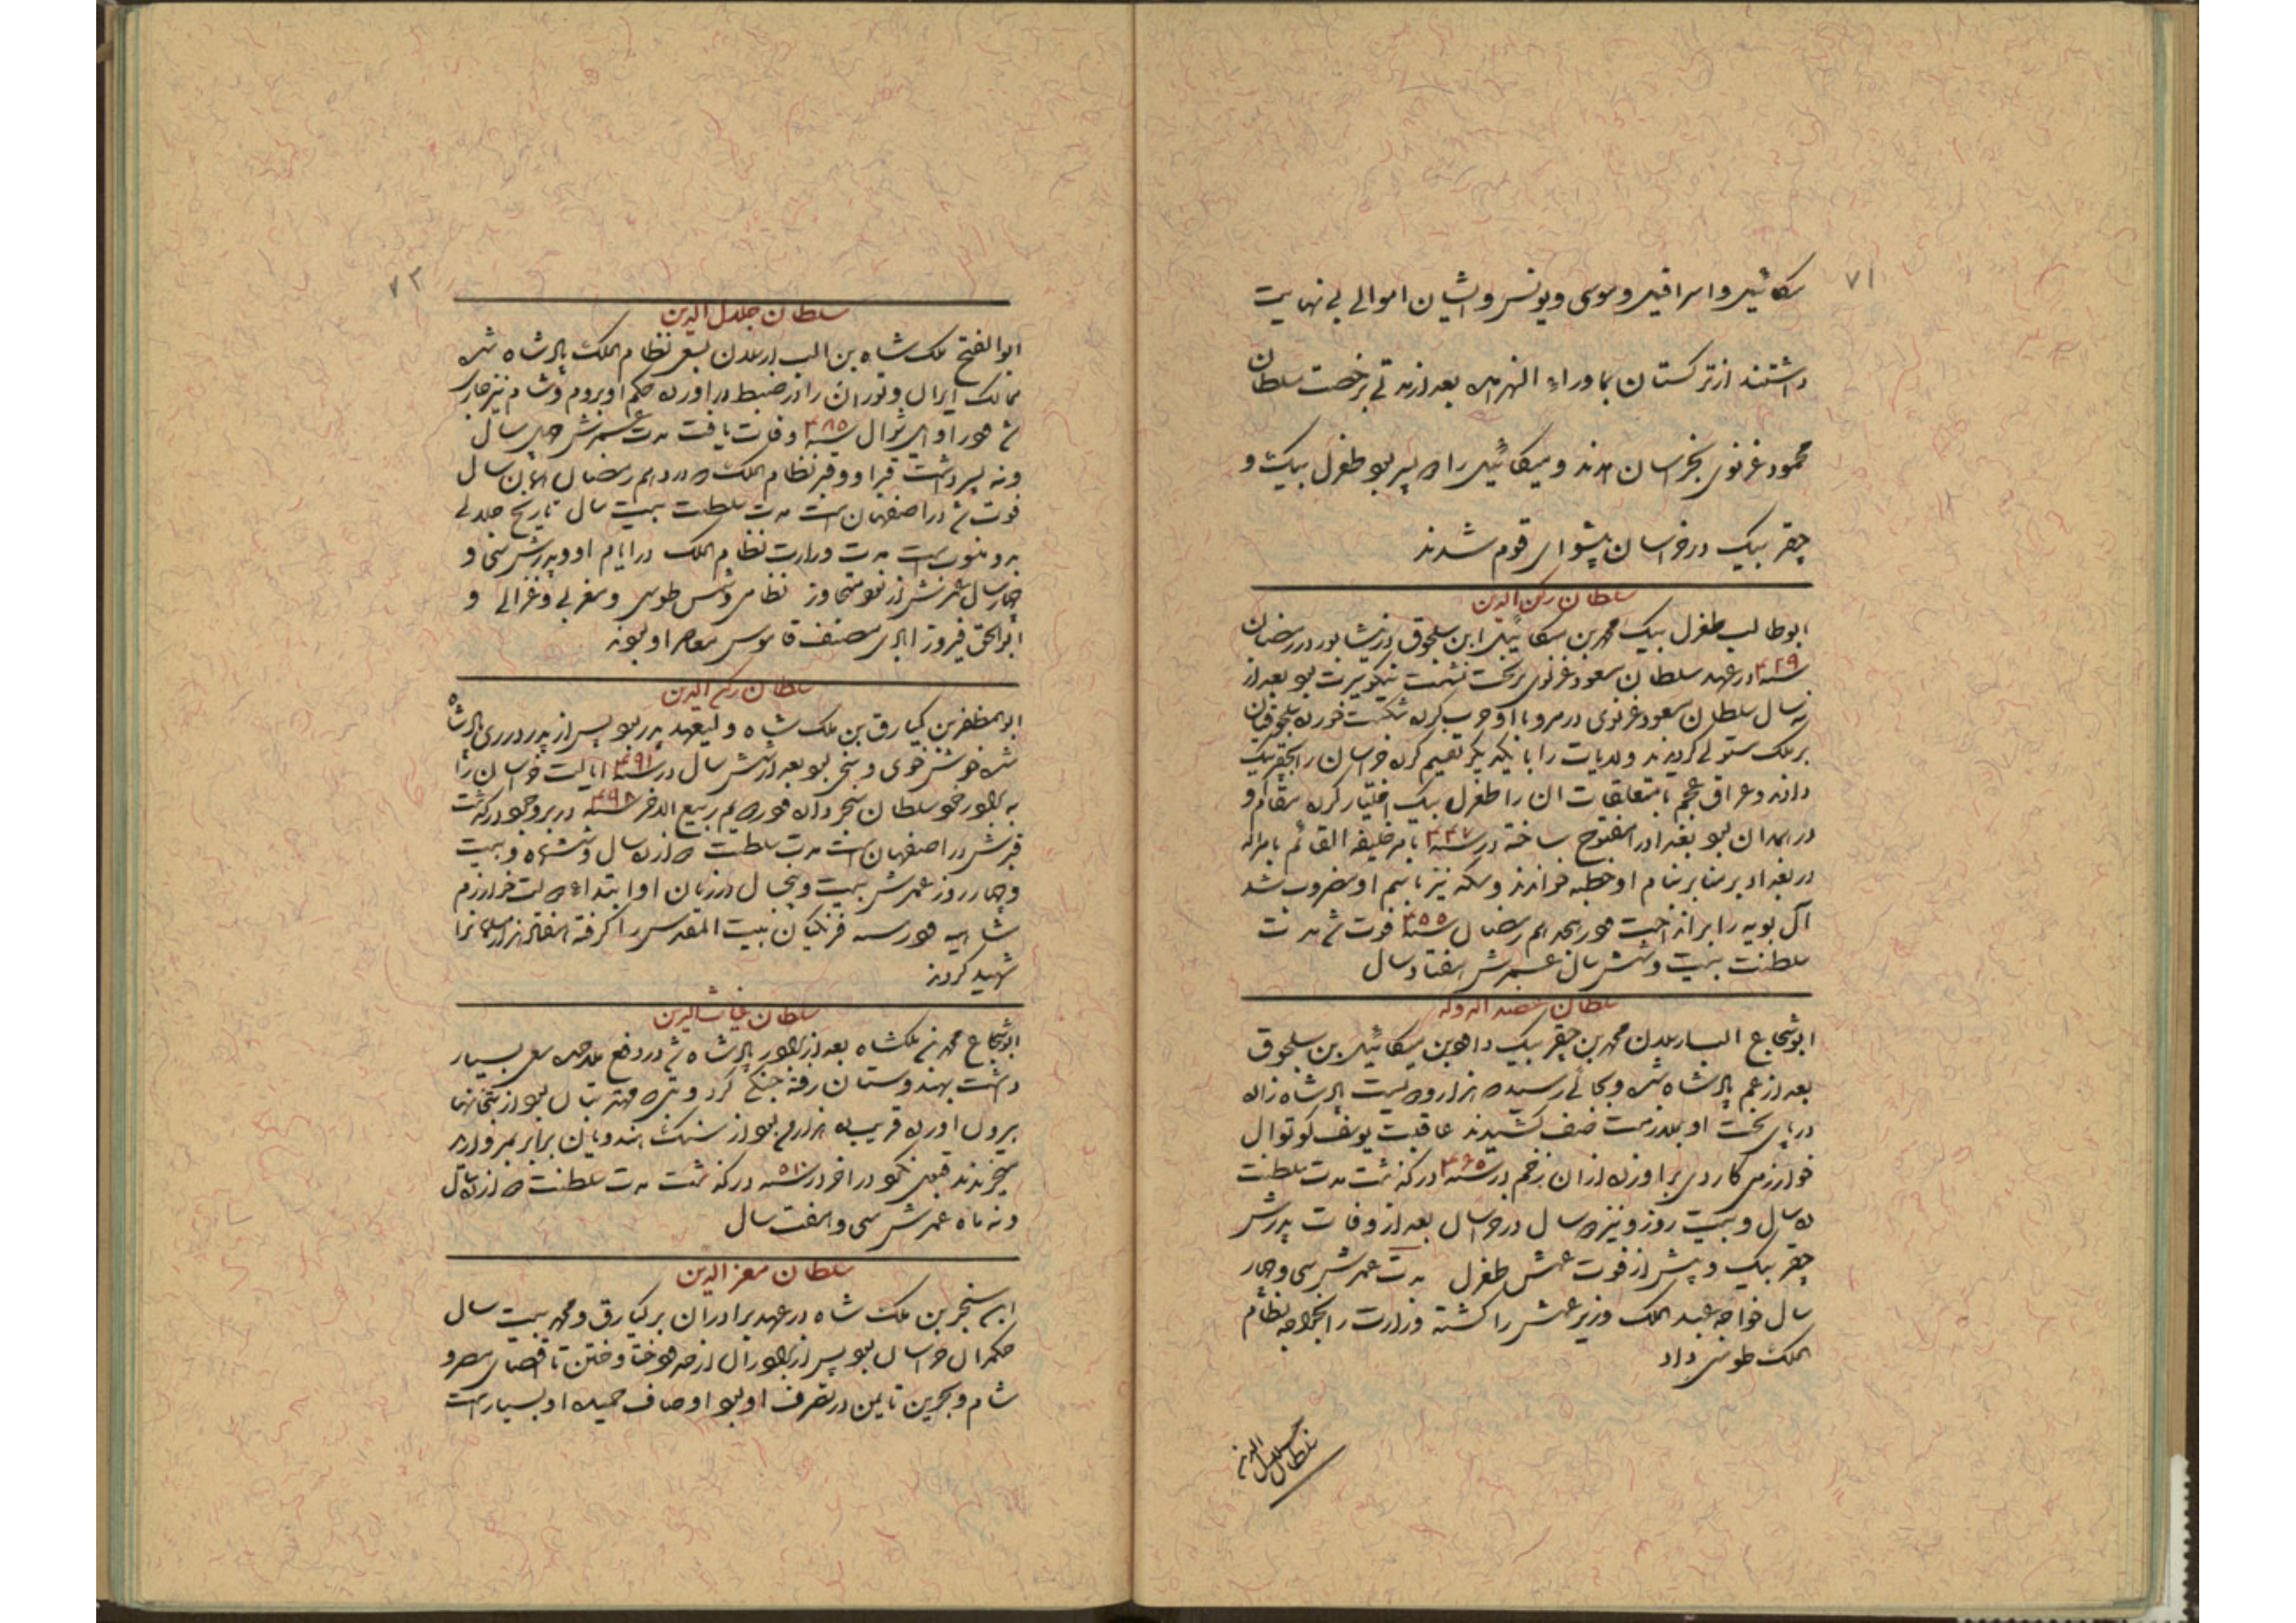 ۷۱
میکائیل و اسرافیل و موسی و یونس و ایشان اموالے بے نهایت
داشتند از ترکستان بماوراء النهر آمده بعد از مدتے برخصت سلطان
محمود غزنوی بخراسان آمدند و میکائیل را دو پسر بود طغرل بیک و
چقر بیک در خراسان پیشوای قوم شدند
سلطان رکن الدین
ابوطالب طغرل بیک محمد بن میکائیل ابن سلجوق در نیشابور در رمضان
سنه ۴۲۹ در عهد سلطان مسعود غزنوی بر تخت نشست نیکو سیرت بود بعد از
سه سال سلطان مسعود غزنوی در مرو با او حرب کرده شکست خورده سلجوقیان
بر ملک مستولے گردیدند ولایات را با یکدیگر تقسیم کرده خراسان را بچقر بیک
دادند و عراق عجم با متعلقات آن را طغرل بیک اختیار کرده مقام او
در همدان بود بغداد را مفتوح ساخته در سنه ۴۴۷ بامر خلیفه القائم بامر الله
در بغداد بر منابر بنام او خطبه خواندند و سکه نیز باسم او مضروب شد
آل بویه را برانداخت در هجدهم رمضان سنه ۴۵۵ فوت شد مدت
سلطنت بیست و شش سال عمرش هفتاد سال
سلطان عضد الدوله
ابو شجاع الب ارسلان محمد بن چقر بیک داود بن میکائیل بن سلجوق
بعد از عم پادشاه شده و بجائے رسیده هزار و دویست پادشاه زاده
در پای تخت او بملازمت صف کشیدند عاقبت یوسف کوتوال
خوارزمی کاردی بر او زده از آن زخم در سنه ۴۶۵ درگذشت مدت سلطنت
ده سال و بیست روز و نیز دو سال در خراسان بعد از وفات پدرش
چقر بیک و پیش از فوت عمش طغرل مدت عمرش سی و چهار
سال خواجه عبد الملک وزیر عمش را کشته وزارت را بخواجه نظام
الملک طوسی داد
سلطان جلال الدین
۷۲
سلطان جلال الدین
ابو الفتح ملک شاه بن الب ارسلان بسعی نظام الملک پادشاه شده
ممالک ایران و توران را در ضبط در آورده حکم او بروم و شام نیز جاری
شد در اوایل شوال سنه ۴۸۵ وفات یافت مدت عمرش چهل سال
و نه پسر داشت قبر او و قبر نظام الملک که در دهم رمضان همان سال
فوت شد در اصفهان است مدت سلطنت بیست سال تاریخ جلالے
بدو منسوبست مدت وزارت نظام الملک در ایام او و پدرش سی و
چهار سال عمرش از نود متجاوز نظامی و شمس طوسی و مغربی و غزالے و
ابو اسحق فیروز ابادی مصنف قاموس معاصر او بودند
سلطان رکن الدین
ابو المظفر بن کیارق بن ملک شاه ولیعهد پدر بود پس از پدر در ری پادشاه
شد خوش خوی و سخی بود بعد از شش سال در سنه ۴۹۱ ایالت خراسان را
به برادر خود سلطان سنجر داده دوازدهم ربیع الاخر سنه ۴۹۸ در بروجرد درگذشت
قبرش در اصفهان است مدت سلطنت دوازده سال و شش ماه و بیست
و چهار روز عمرش بیست و پنج سال در زمان او ابتداء دولت خوارزم
شاهیه فرنگیان بیت المقدس را گرفته هفتاد هزار مسلمانرا
شهید کردند
سلطان غیاث الدین
ابو شجاع محمد بن ملکشاه بعد از برادر پادشاه شد در دفع ملاحده سعی بسیار
داشت بهندوستان رفته جنگے کرد و بتی که مهتر بتان بود از بتخانها
بیرون اورده قریب ده هزار من بود از سنگ هندویان برابر بمروارید
میخریدند قبول نکرد در آخر در سنه ۵۱۰ درگذشت مدت سلطنت دوازده سال
و نه ماه عمرش سی و هفت سال
سلطان معز الدین
سنجر بن ملک شاه در عهد برادران برکیارق و محمد بیست سال
حکمران خراسان بود پس از برادران از حد ختا و ختن تا اقصای مصر و
شام و بحرین تا یمن در تصرف او بود اوصاف حمیده او بسیار است